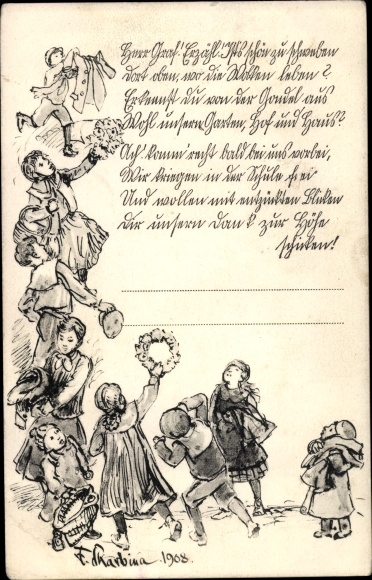 Herr Graf! Erzähl: Ist's schön zu schweben
Dort oben, wo die Wolken leben?
Erkennst Du von der Gondel aus
Wohl unsern Garten, Hof und Haus?
Ach komm' recht bald bei uns vorbei,
Wir kriegen in der Schule frei
Und wollen mit entzückten Blicken
Dir unsern Dank zur Höhe
schicken!
F. Skarbina 1908.